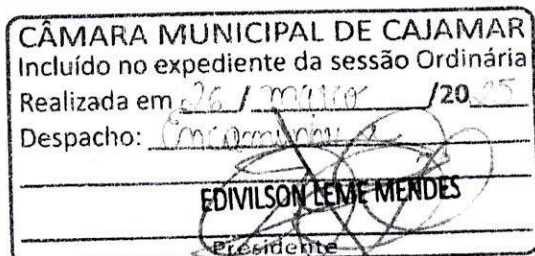 CÂMARA MUNICIPAL DE CAJAMAR
Incluído no expediente da sessão Ordinária
Realizada em 26 / março /20 25
Despacho: Encaminhe-se
EDIVILSON LEME MENDES
Presidente